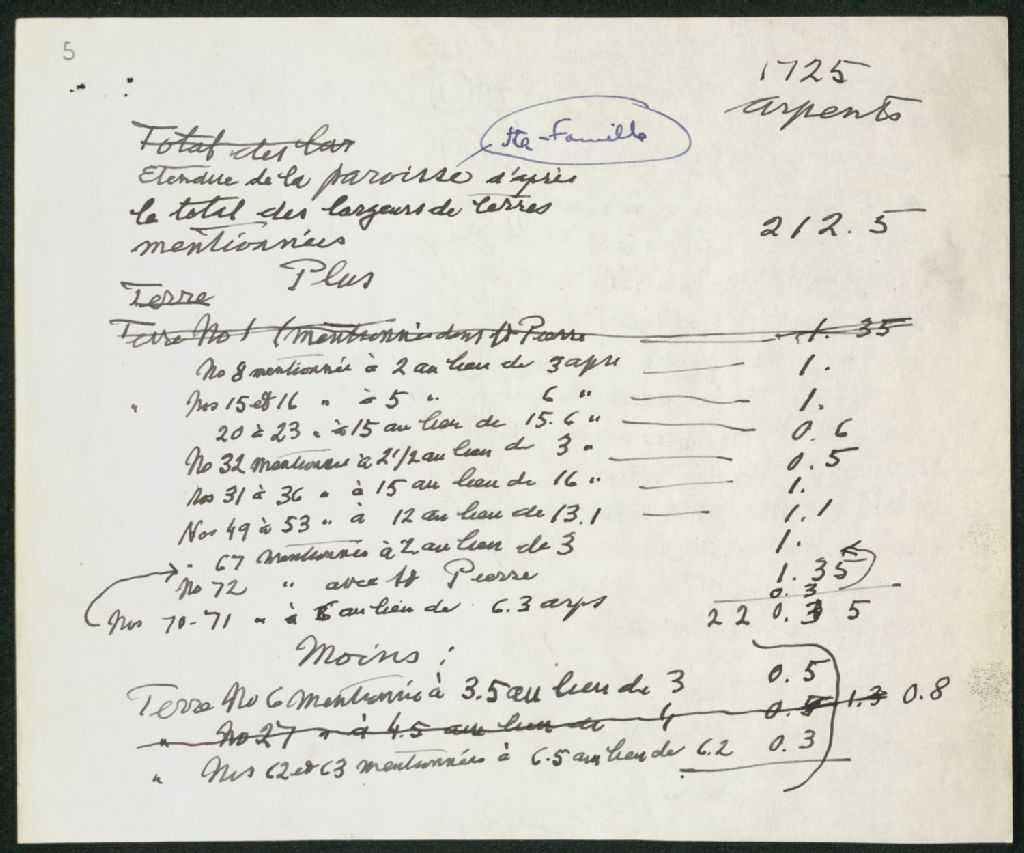 5
1725
arpents
Total des lar
Ste-Famille
Etendue de la paroisse d'après
le total des largeurs de terres
mentionnées 212.5
Plus
Terre
Terre No 1 (mentionnée dans St Pierre 1.35
No 8 mentionnée à 2 au lieu de 3 arps 1.
" Nos 15 et 16 " à 5 " 6 " 1.
20 à 23 " à 15 au lieu de 15.6 " 0.6
No 32 mentionnée à 2 1/2 au lieu de 3 " 0.5
Nos 31 à 36 " à 15 au lieu de 16 " 1.
Nos 49 à 53 " à 12 au lieu de 13.1 1.1
" 67 mentionnée à 2 au lieu de 3 1.
No 72 " avec St Pierre 1.35
Nos 70-71 " à 6 au lieu de 6.3 arps 0.3
220.35
Moins :
Terre No 6 mentionnée à 3.5 au lieu de 3 0.5
" No 27 " à 4.5 au lieu de 4 0.5 1.3 0.8
" Nos 62 et 63 mentionnées à 6.5 au lieu de 6.2 0.3